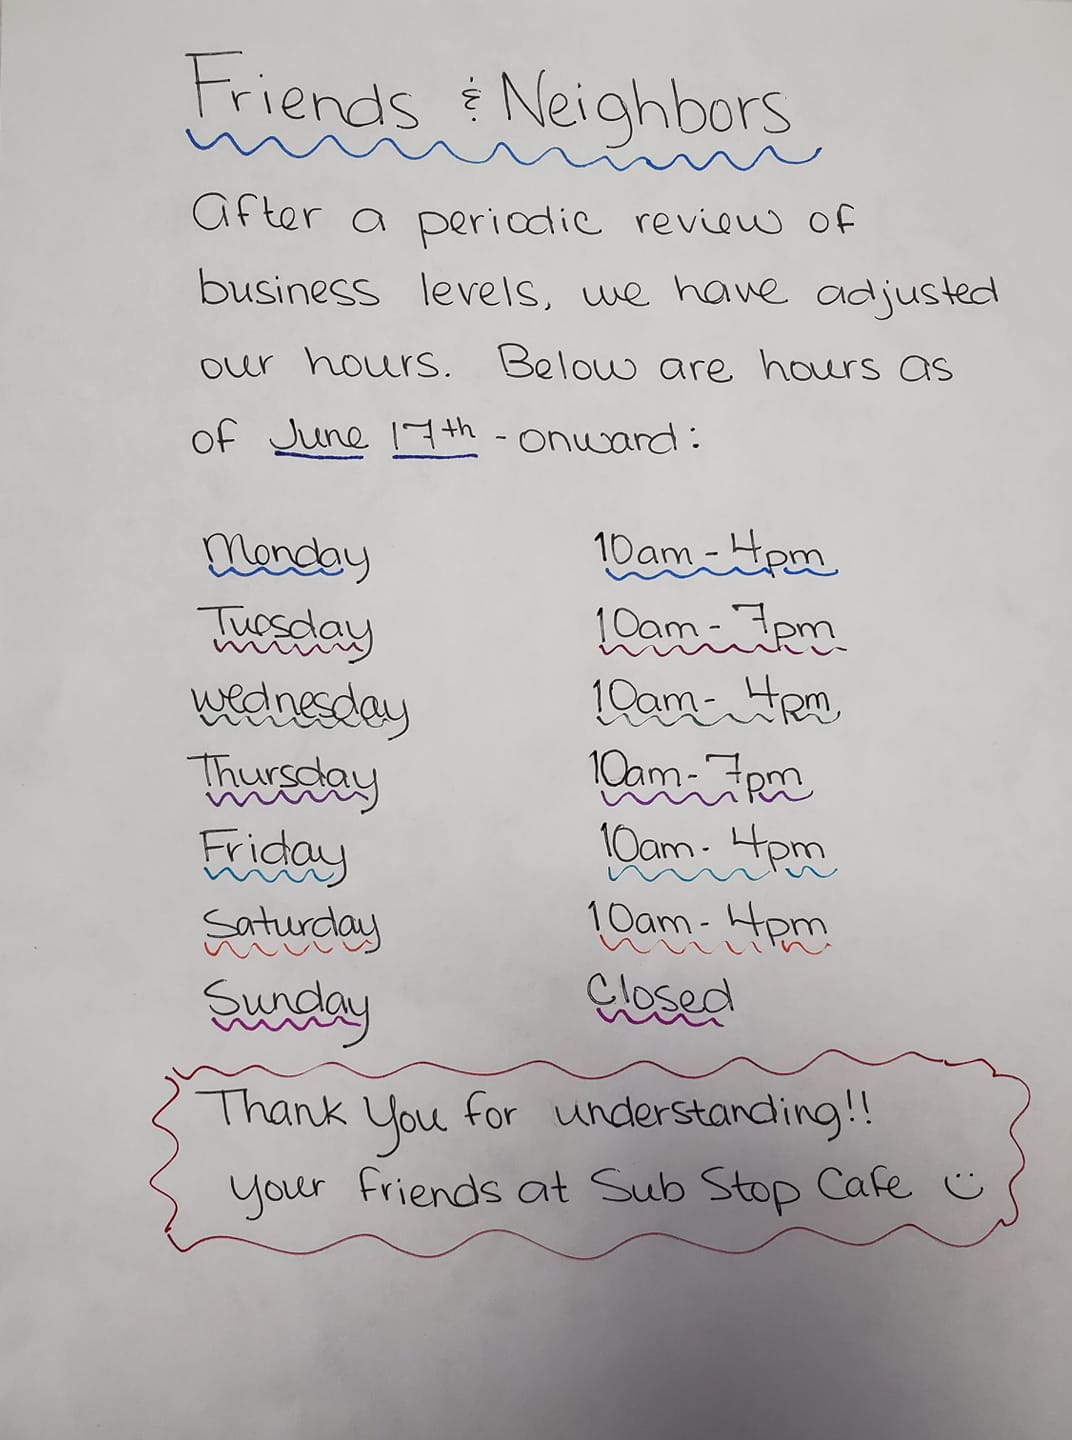 Friends & Neighbors
After a periodic review of
business levels, we have adjusted
our hours. Below are hours as
of June 17th - onward:
Monday 10am - 4pm
Tuesday 10am - 7pm
Wednesday 10am - 4pm
Thursday 10am - 7pm
Friday 10am - 4pm
Saturday 10am - 4pm
Sunday Closed
Thank You for understanding!!
your friends at Sub Stop Cafe